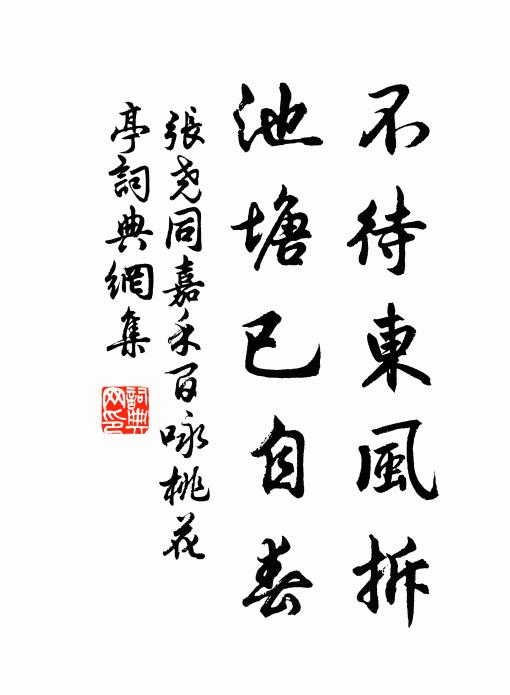 不待東風拆
池塘已自春
張堯同嘉禾百咏桃花
亭詞典網集
詞典
网印